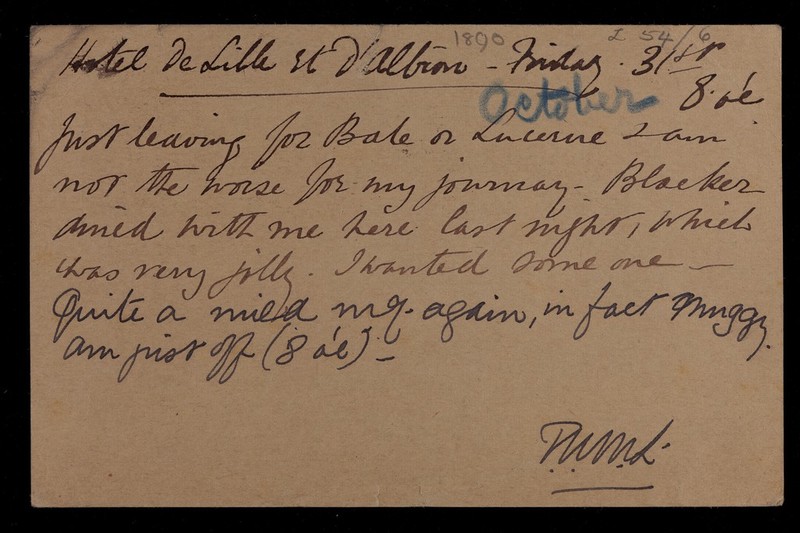 1890 L 54/6
Hotel De Lille et D'Albion - Friday. 31st
October 8. o'c
Just leaving for Bale or Lucerne I am
not the worse for my journey - Blacker
dined with me here last night, which
was very jolly. I wanted some one -
Quite a mild mg. again, in fact muggy.
am just off (8 o'c) -